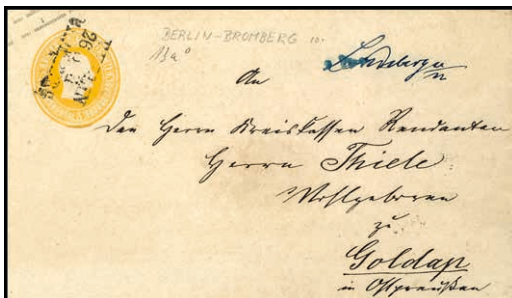 BERLIN-BROMBERG 10.-
An
Den Herrn Kreiskassen Rendanten
Herrn Thiele
Wohlgeboren
zu
Goldap
in Ostpreußen